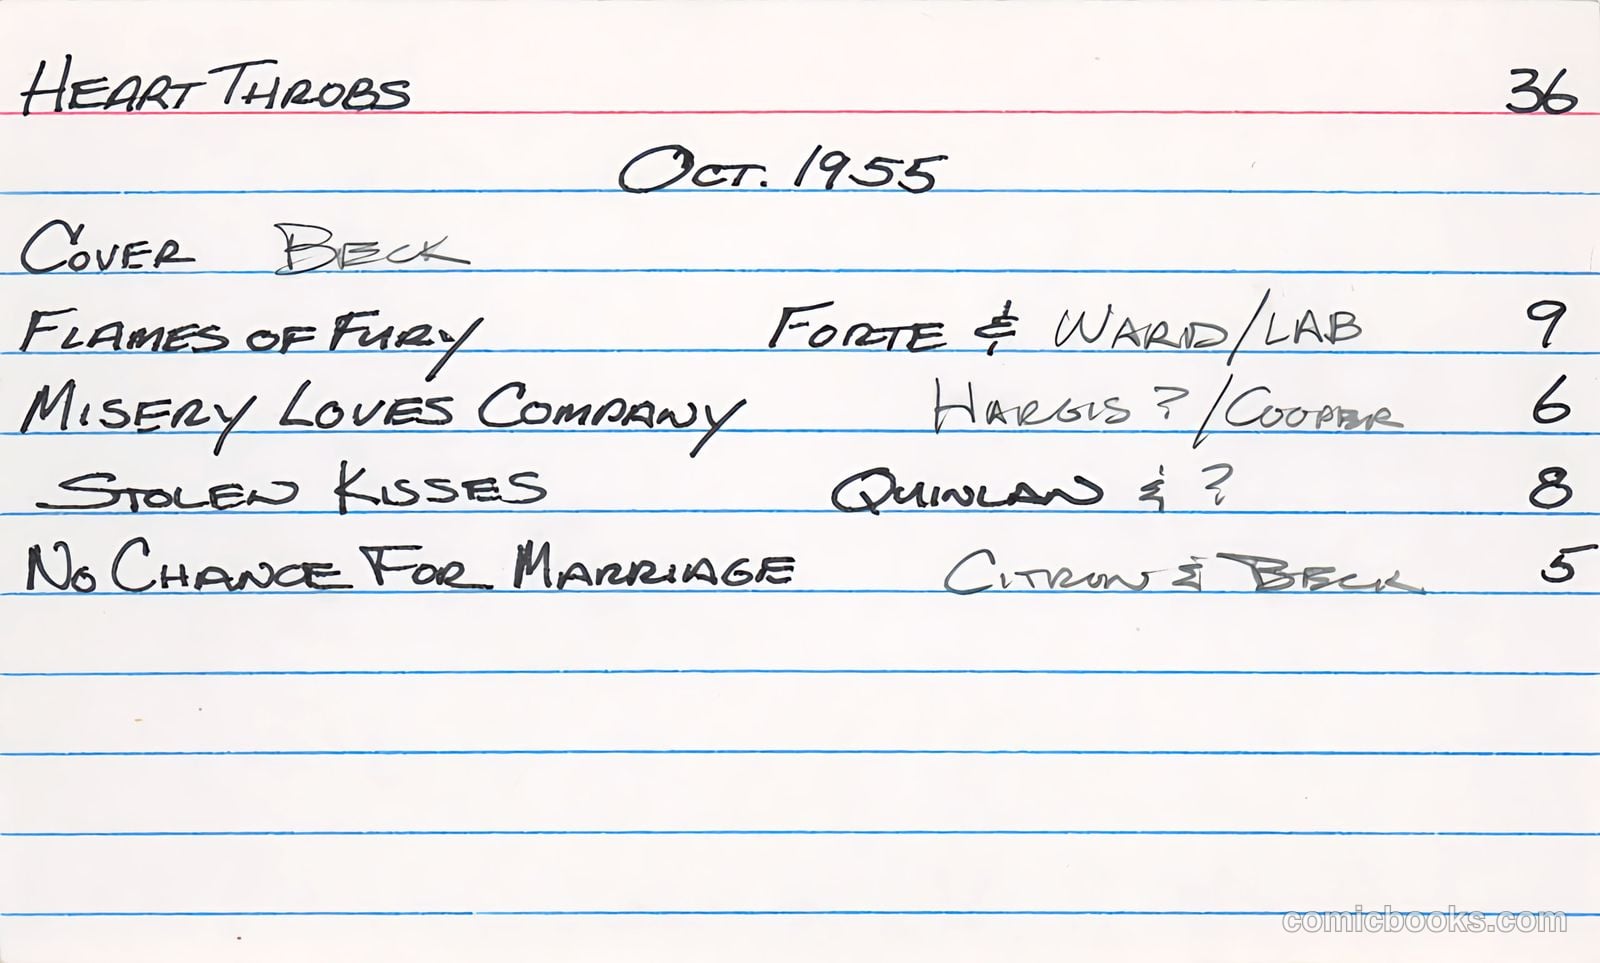 HEART THROBS 36
OCT. 1955
COVER BECK
FLAMES OF FURY FORTE & WARD/LAB 9
MISERY LOVES COMPANY HARGIS ?/COOPER 6
STOLEN KISSES QUINLAN & ? 8
NO CHANCE FOR MARRIAGE CITRON & BECK 5
comicbooks.com